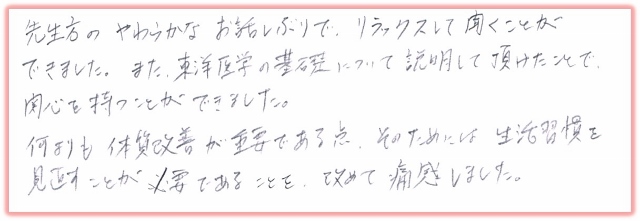 先生方の やわらかな お話しぶりで、リラックスして 聞くことが
できました。また、東洋医学の基礎について 説明して 頂けたことで、
関心を持つことが できました。
何よりも 体質改善が 重要である点、そのためには 生活習慣を
見直すことが 必要であることを、改めて 痛感しました。